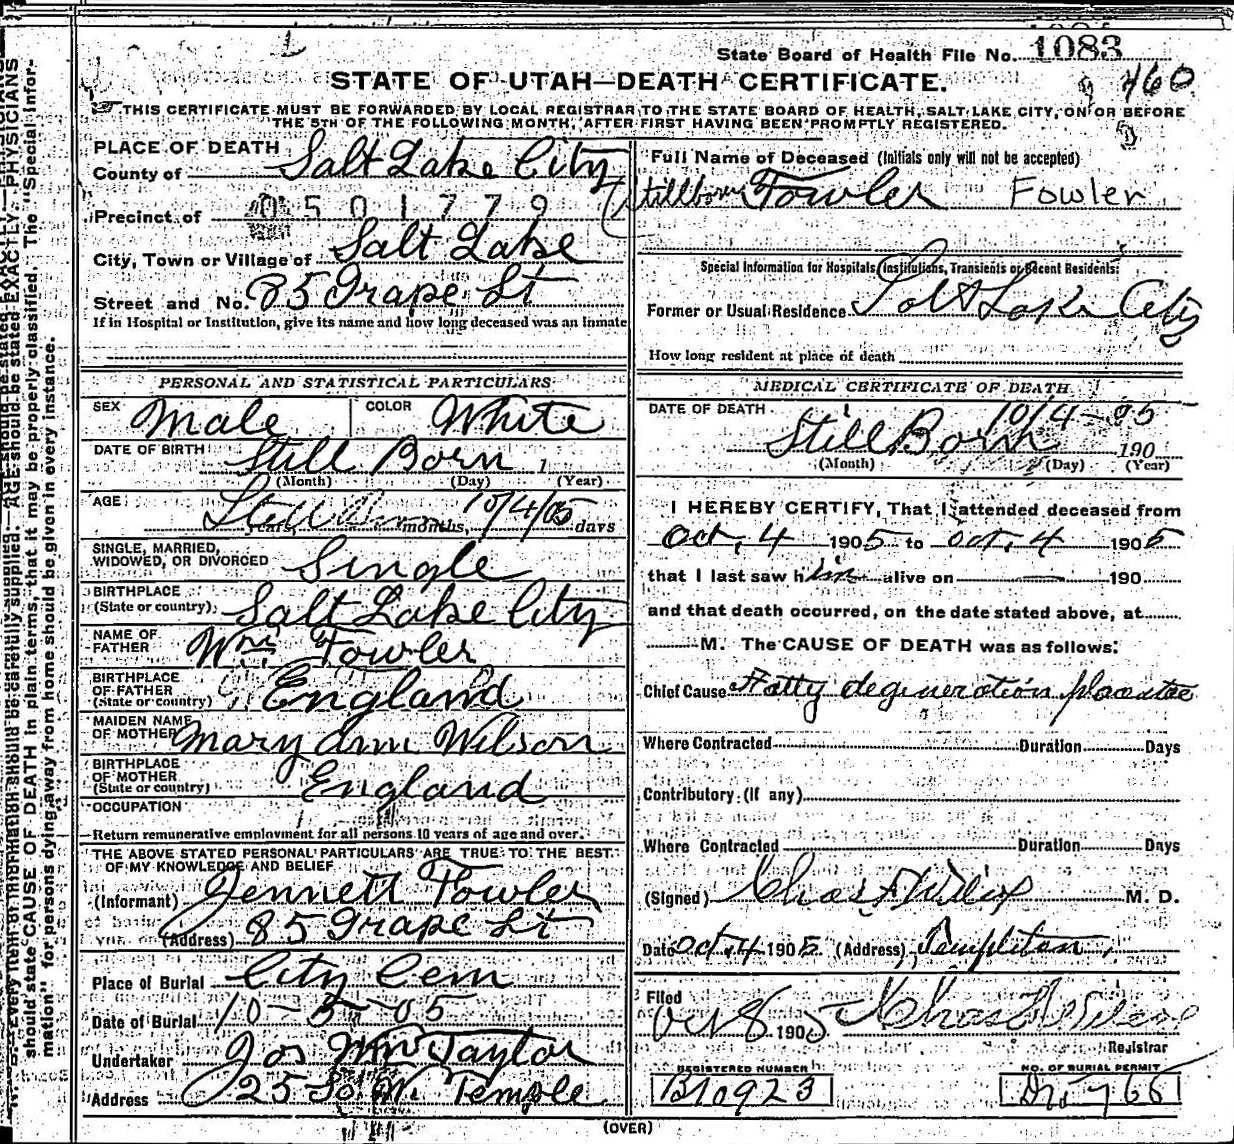 State Board of Health File No. 1083
460
STATE OF UTAH—DEATH CERTIFICATE.
THIS CERTIFICATE MUST BE FORWARDED BY LOCAL REGISTRAR TO THE STATE BOARD OF HEALTH, SALT LAKE CITY, ON OR BEFORE
THE 5TH OF THE FOLLOWING MONTH, AFTER FIRST HAVING BEEN PROMPTLY REGISTERED.
PLACE OF DEATH
County of Salt Lake City
Precinct of 0501779
City, Town or Village of Salt Lake
Street and No. 85 Grape St
If in Hospital or Institution, give its name and how long deceased was an inmate
PERSONAL AND STATISTICAL PARTICULARS
SEX Male COLOR White
DATE OF BIRTH Still Born 1
(Month) (Day) (Year)
AGE Still Born 10/4/05
years, months, days
SINGLE, MARRIED,
WIDOWED, OR DIVORCED Single
BIRTHPLACE
(State or country) Salt Lake City
NAME OF
FATHER Wm Fowler
BIRTHPLACE
OF FATHER
(State or country) England
MAIDEN NAME
OF MOTHER Mary Ann Wilson
BIRTHPLACE
OF MOTHER
(State or country) England
OCCUPATION
Return remunerative employment for all persons 10 years of age and over.
THE ABOVE STATED PERSONAL PARTICULARS ARE TRUE TO THE BEST
OF MY KNOWLEDGE AND BELIEF
(Informant) Jennett Fowler
(Address) 85 Grape St
Place of Burial City Cem
Date of Burial 10-5-05
Undertaker Jos Wm Taylor
Address 25 So W. Temple
Full Name of Deceased (Initials only will not be accepted)
(Stillborn Fowler Fowler
Special Information for Hospitals, Institutions, Transients or Recent Residents:
Former or Usual Residence Salt Lake City
How long resident at place of death
MEDICAL CERTIFICATE OF DEATH
DATE OF DEATH 10/4-05
Still Born 190
(Month) (Day) (Year)
I HEREBY CERTIFY, That I attended deceased from
Oct, 4 1905 to Oct, 4 1905
that I last saw him alive on — 190
and that death occurred, on the date stated above, at
M. The CAUSE OF DEATH was as follows:
Chief Cause Fatty degeneration placentae
Where Contracted Duration Days
Contributory (If any)
Where Contracted Duration Days
(Signed) Chas F Wilcox M. D.
Date Oct, 4 1905 (Address) Templeton
Filed Oct 8 1905
Registrar
REGISTERED NUMBER NO. OF BURIAL PERMIT
B10923 766
(OVER)
should state CAUSE OF DEATH in plain terms, that it may be properly classified. The "Special Infor-
mation" for persons dying away from home should be given in every instance.